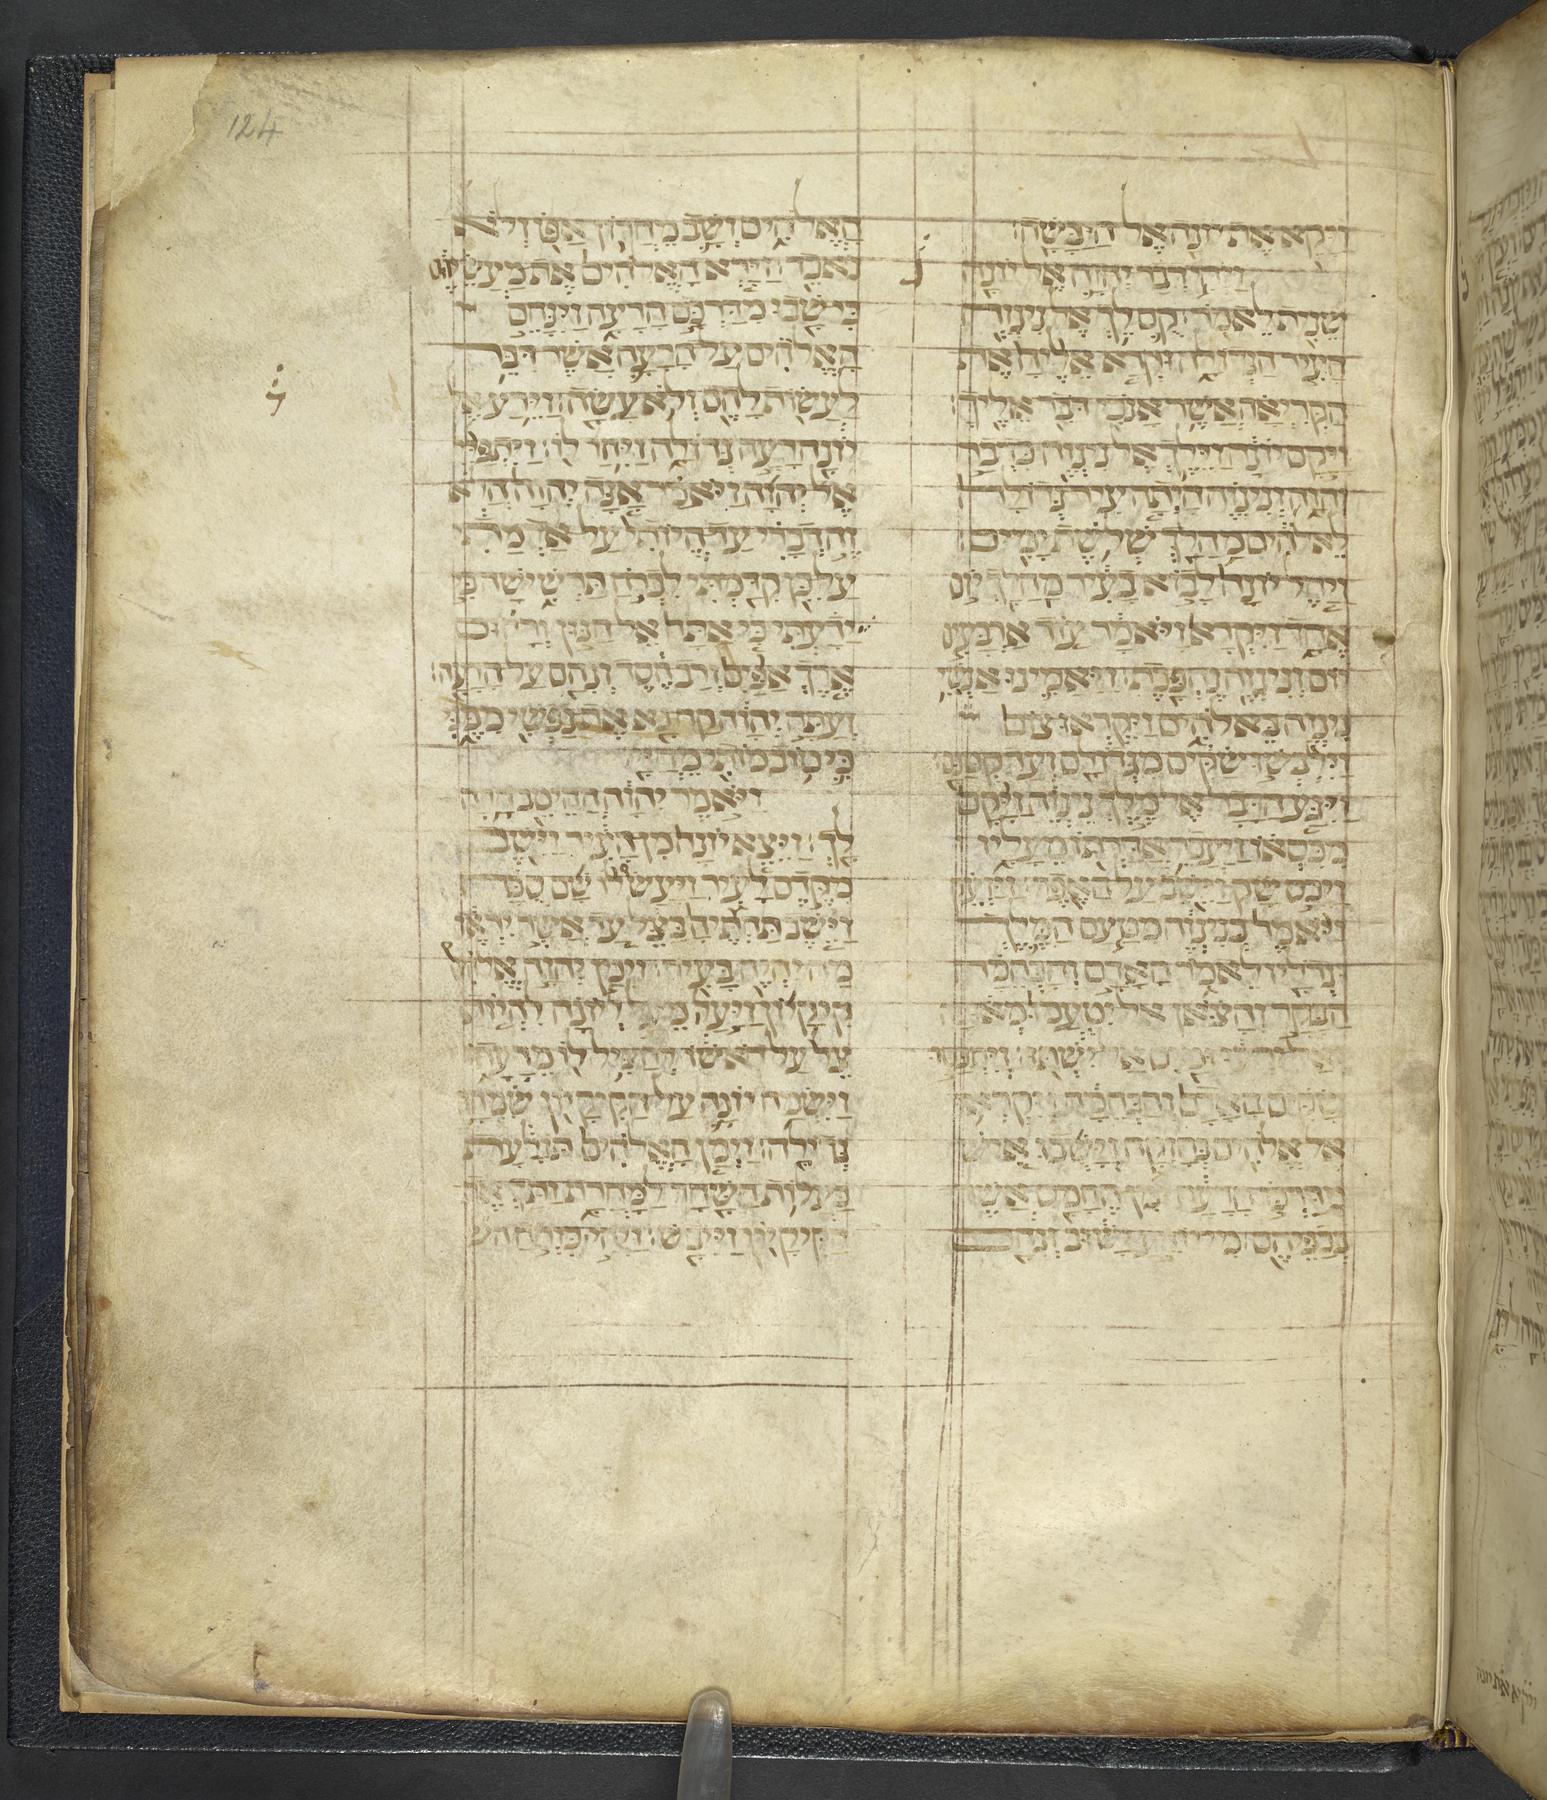 ויקא את יונה אל היבשה׃
ויהי דבר יהוה אל יונה
שנית לאמר׃ קום לך אל נינוה
העיר הגדולה וקרא אליה את
הקריאה אשר אנכי דבר אליך׃
ויקם יונה וילך אל נינוה כדבר
יהוה ונינוה היתה עיר גדולה
לאלהים מהלך שלשת ימים׃
ויחל יונה לבוא בעיר מהלך יום
אחד ויקרא ויאמר עוד ארבעים
יום ונינוה נהפכת׃ ויאמינו אנשי
נינוה באלהים ויקראו צום
וילבשו שקים מגדולם ועד קטנם׃
ויגע הדבר אל מלך נינוה ויקם
מכסאו ויעבר אדרתו מעליו
ויכס שק וישב על האפר׃ ויזעק
ויאמר בנינוה מטעם המלך
וגדליו לאמר האדם והבהמה
הבקר והצאן אל יטעמו מאומה
אל ירעו ומים אל ישתו׃ ויתכסו
שקים האדם והבהמה ויקראו
אל אלהים בחזקה וישבו איש
מדרכו הרעה ומן החמס אשר
בכפיהם׃ מי יודע ישוב ונחם
האלהים ושב מחרון אפו ולא
נאבד׃ וירא האלהים את מעשיהם
כי שבו מדרכם הרעה וינחם
האלהים על הרעה אשר דבר
לעשות להם ולא עשה׃ וירע אל
יונה רעה גדולה ויחר לו׃ ויתפלל
אל יהוה ויאמר אנה יהוה הלוא
זה דברי עד היותי על אדמתי
על כן קדמתי לברח תרשישה כי
ידעתי כי אתה אל חנון ורחום
ארך אפים ורב חסד ונחם על הרעה׃
ועתה יהוה קח נא את נפשי ממני
כי טוב מותי מחיי׃
ויאמר יהוה ההיטב חרה
לך׃ ויצא יונה מן העיר וישב
מקדם לעיר ויעש לו שם סכה
וישב תחתיה בצל עד אשר יראה
מה יהיה בעיר׃ וימן יהוה אלהים
קיקיון ויעל מעל ליונה להיות
צל על ראשו להציל לו מרעתו
וישמח יונה על הקיקיון שמחה
גדולה׃ וימן האלהים תולעת
בעלות השחר למחרת ותך את
הקיקיון וייבש׃ ויהי כזרח השמש
124